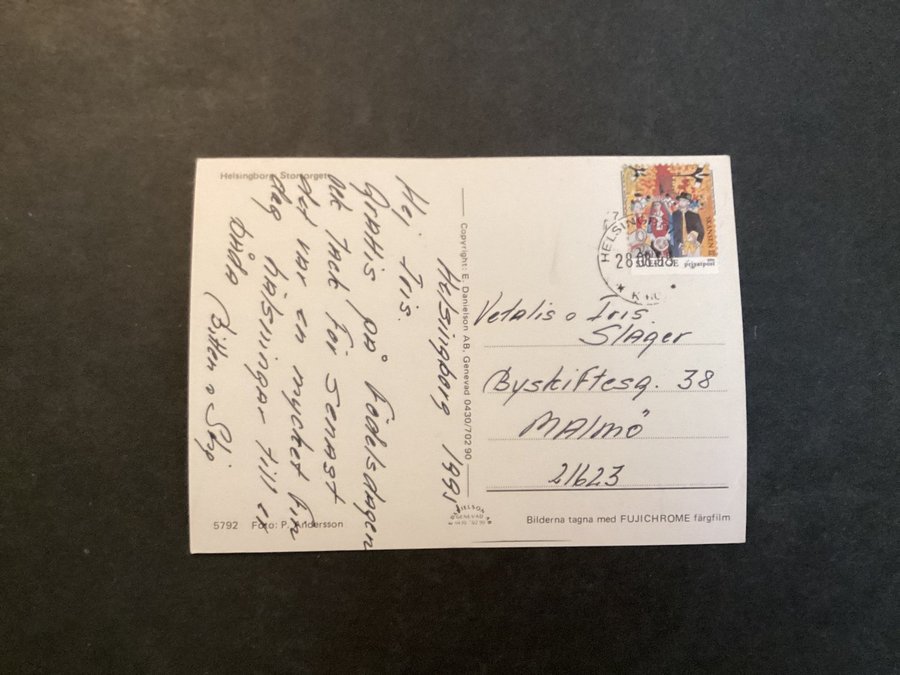 Helsingborg Stortorget
Helsingborg 1995
Hej Iris.
Grattis på födelsdagen
och tack för senast
det var en mycket fin
dag hälsningar till er
båda Bitten o Stig
5792 Foto: P. Andersson
Copyright: E. Danielson AB, Genevad 0430/702 90
DANIELSON
GENEVAD
HELSINGBORG
28
SVERIGE privatpost
SKANSEN
Vetalis o Iris.
Slager
Byskiftesg. 38
MALMÖ
21623
Bilderna tagna med FUJICHROME färgfilm